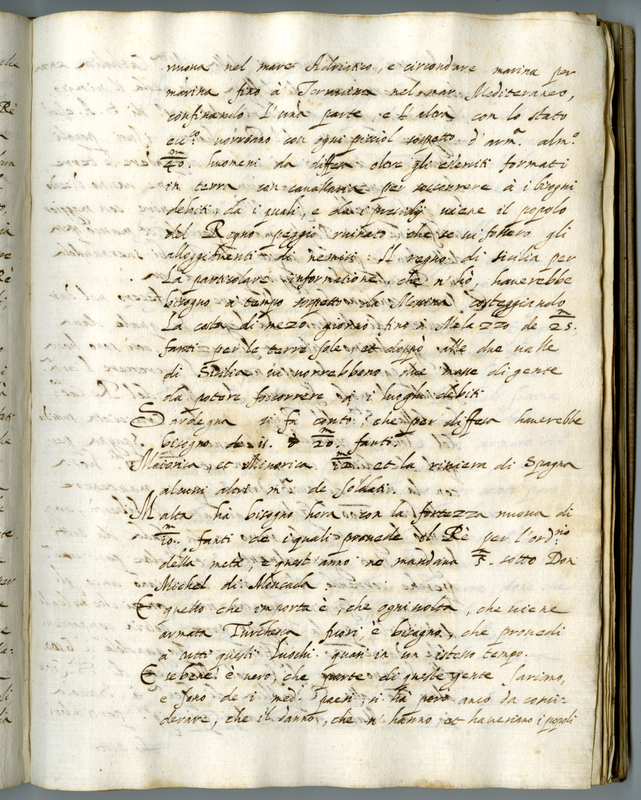 nuova nel mare Adriatico, e circondare marina per
marina fino à Terracina nel mar Mediteraneo,
confinando l'una parte, e l'altra con lo stato
ecc.co vorrano con ogni picciol sospetto d'arm.a alm.o
40.m huomeni da diffesa oltre gli eserciti formati
in terra con cavallaria per soccorrere à i bisogni
debiti da i quali, e da i presidij viene il popolo
del Regno peggio ruinato che se vi fossero gli
alloggiamenti di nemici: Il regno di Sicilia per
la particolare informatione, che n'hò, haverebbe
bisogno à tempo sospetto da Messina costeggiando
la costa di mezo giorno fino à Melazzo de 25.m
fanti per le terre sole, et doppò alle due valle
di Sicilia vi vorrebbono due masse di gente
da potere soccorrere à i luoghi debiti
Sardegna si fà conto, che per diffesa haverebbe
bisogno de 20.m fanti
Maiorica et Minorica 12.m et la riviera di Spagna
alcuni altri m.a de soldati
Malta hà bisogno hora con la fortezza nuova di
10.m fanti de i quali provede il Rè per l'ord.rio
della metà, e quest'anno ne mandava 5.m sotto Don
Michel di Moncada
E quello che importa è, che ogni volta, che viene
armata Turchesca fuori, è bisogno, che provedi
a tutti questi luochi quasi in un istesso tempo.
E sebene è vero, che parte di queste gente saremo,
e sono de i med.mi paesi, si hà però anco da consi-
derare, che il danno, che n'hanno, et haveriano i popoli